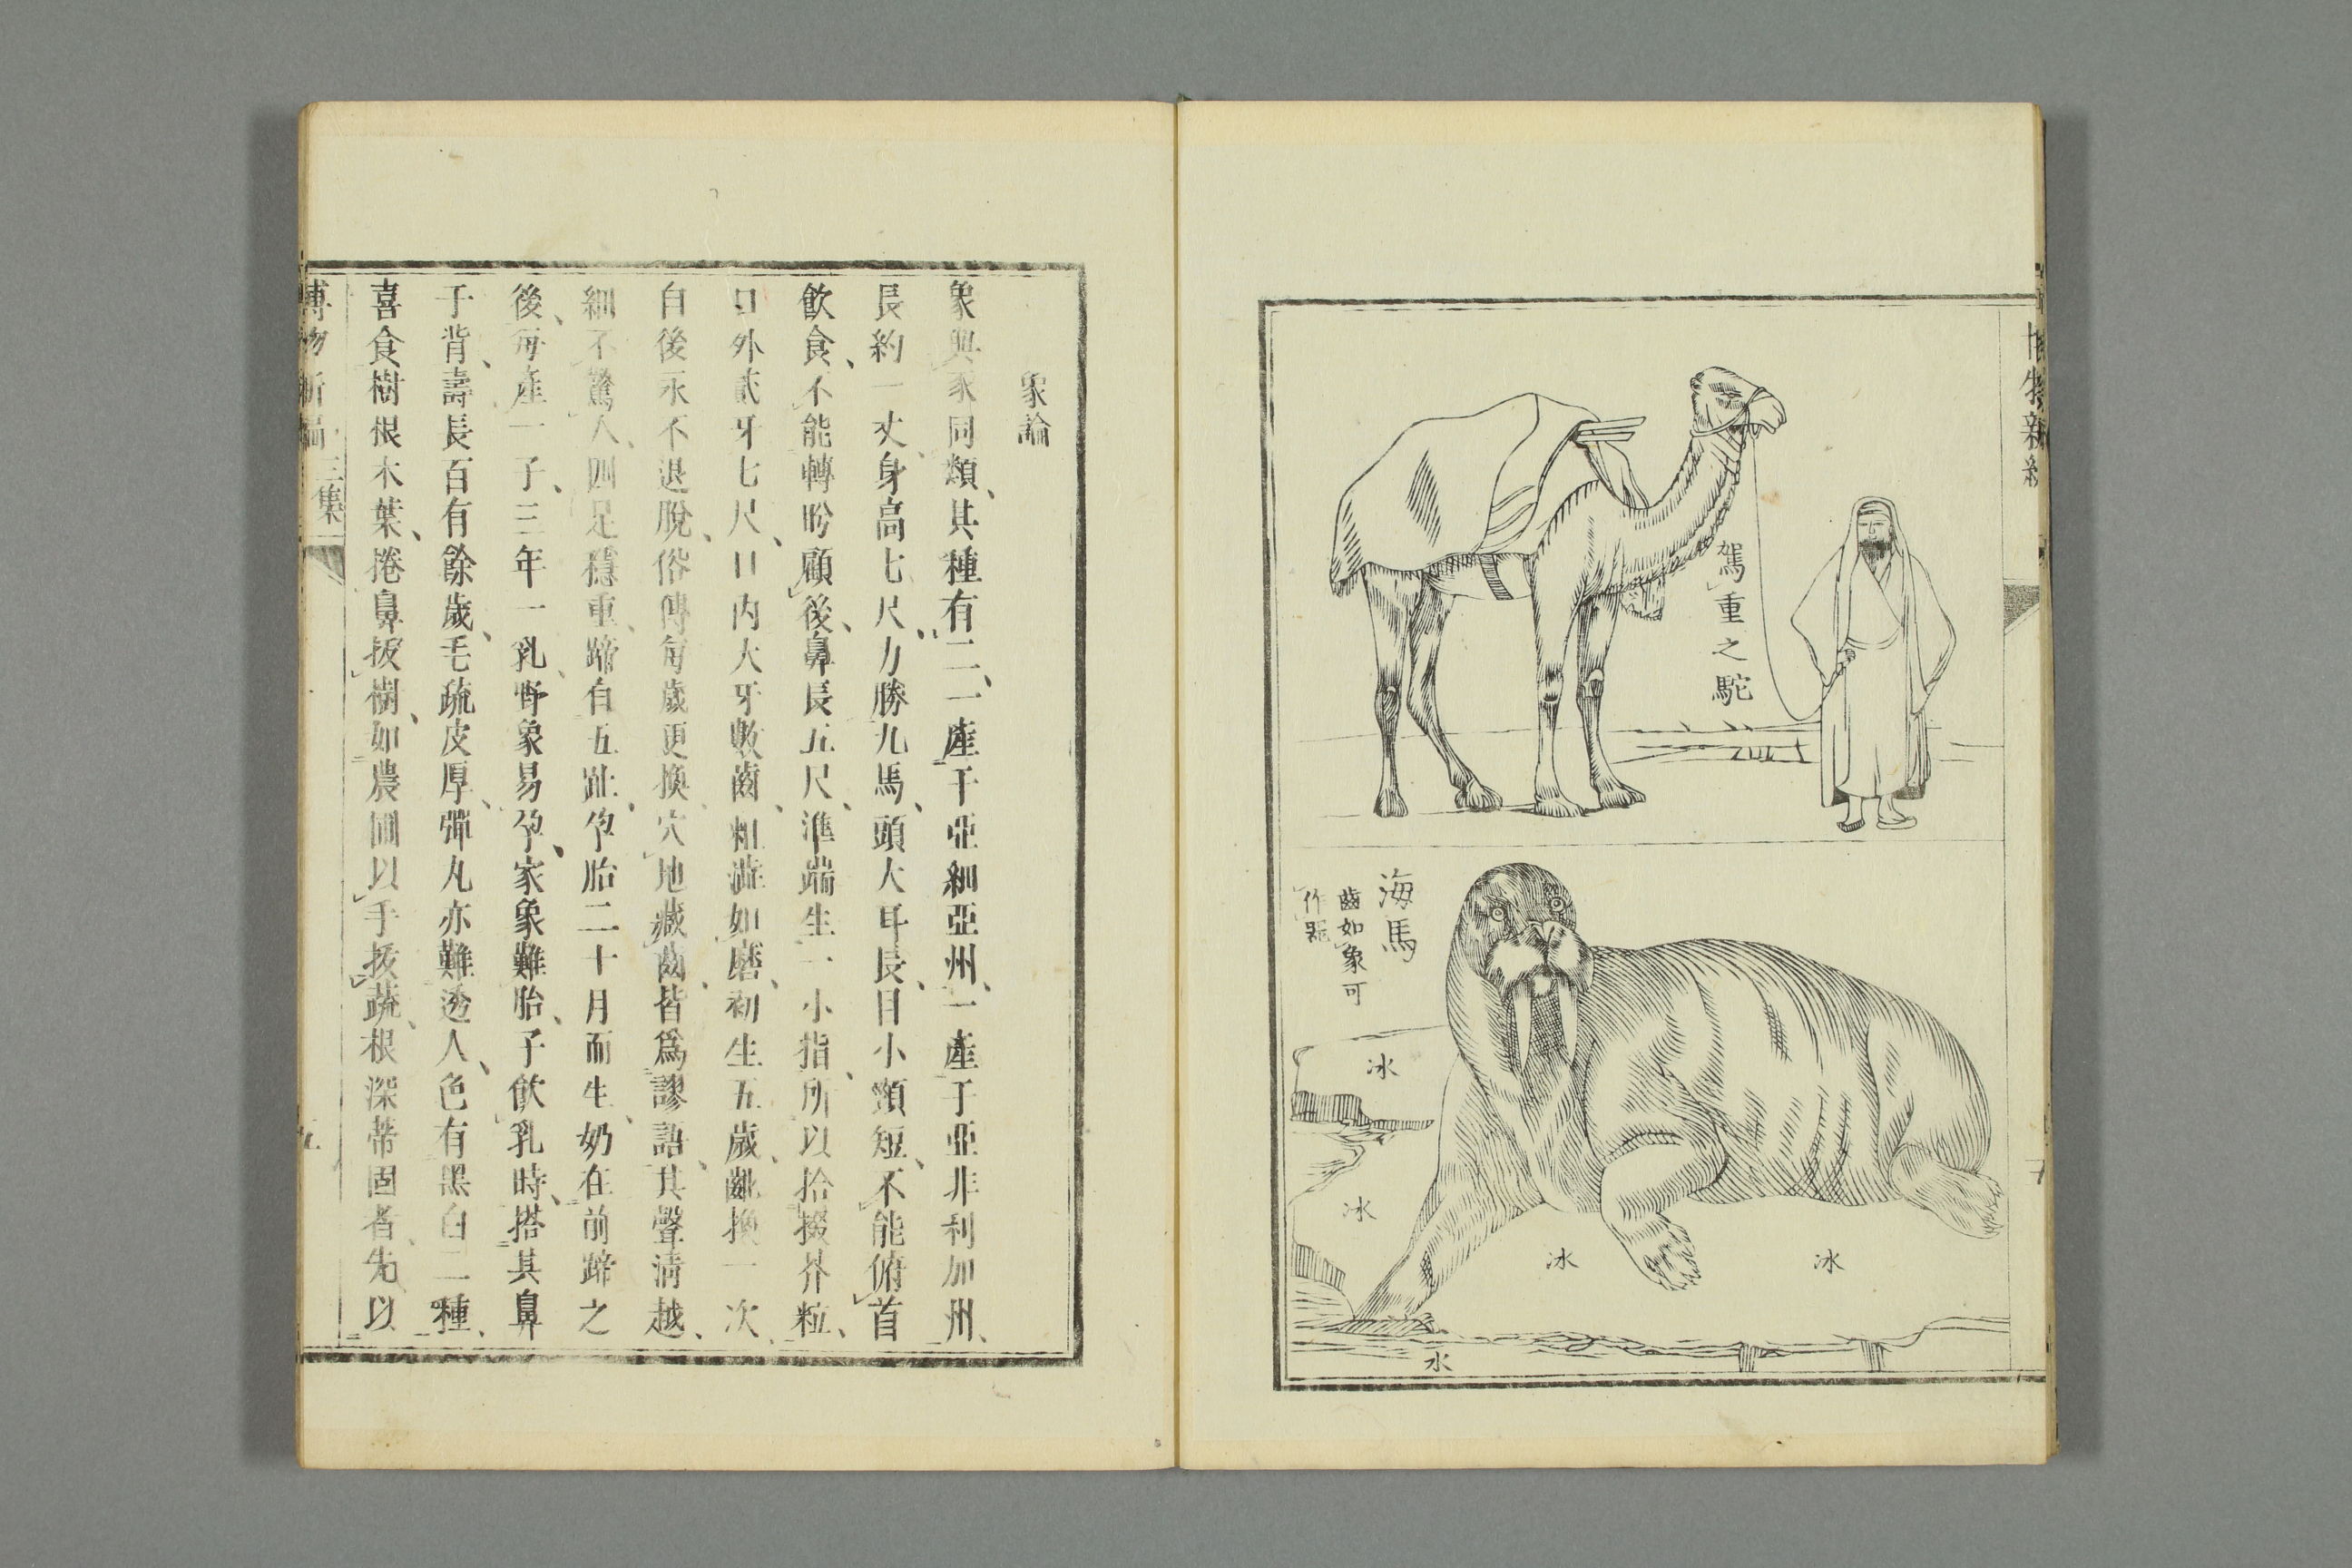 博物新編
駕重之駝
海馬
齒如象可
作器
冰
冰
冰
冰
水
象論
象與豕同類、其種有二、一產于亞細亞州、一產于亞非利加州、
長約一丈、身高七尺、力勝九馬、頭大耳長、目小頸短、不能俯首
飲食、不能轉盼顧後、鼻長五尺、準端生一小指、所以拾掇芥粒、
口外貳牙七尺、口內大牙數齒、粗澁如磨、初生五歲、齔換一次、
自後永不退脫、俗傳每歲更換、穴地藏齒、皆爲謬語、其聲清越、
細不驚人、四足穩重、蹄有五趾、孕胎二十月而生、奶在前蹄之
後、每產一子、三年一乳、野象易孕、家象難胎、子飲乳時、搭其鼻
于背、壽長百有餘歲、毛疏皮厚、彈丸亦難透人、色有黑白二種、
喜食樹根木葉、捲鼻拔樹、如農圃以手拔蔬、根深蒂固者、先以
博物新編 三集 五